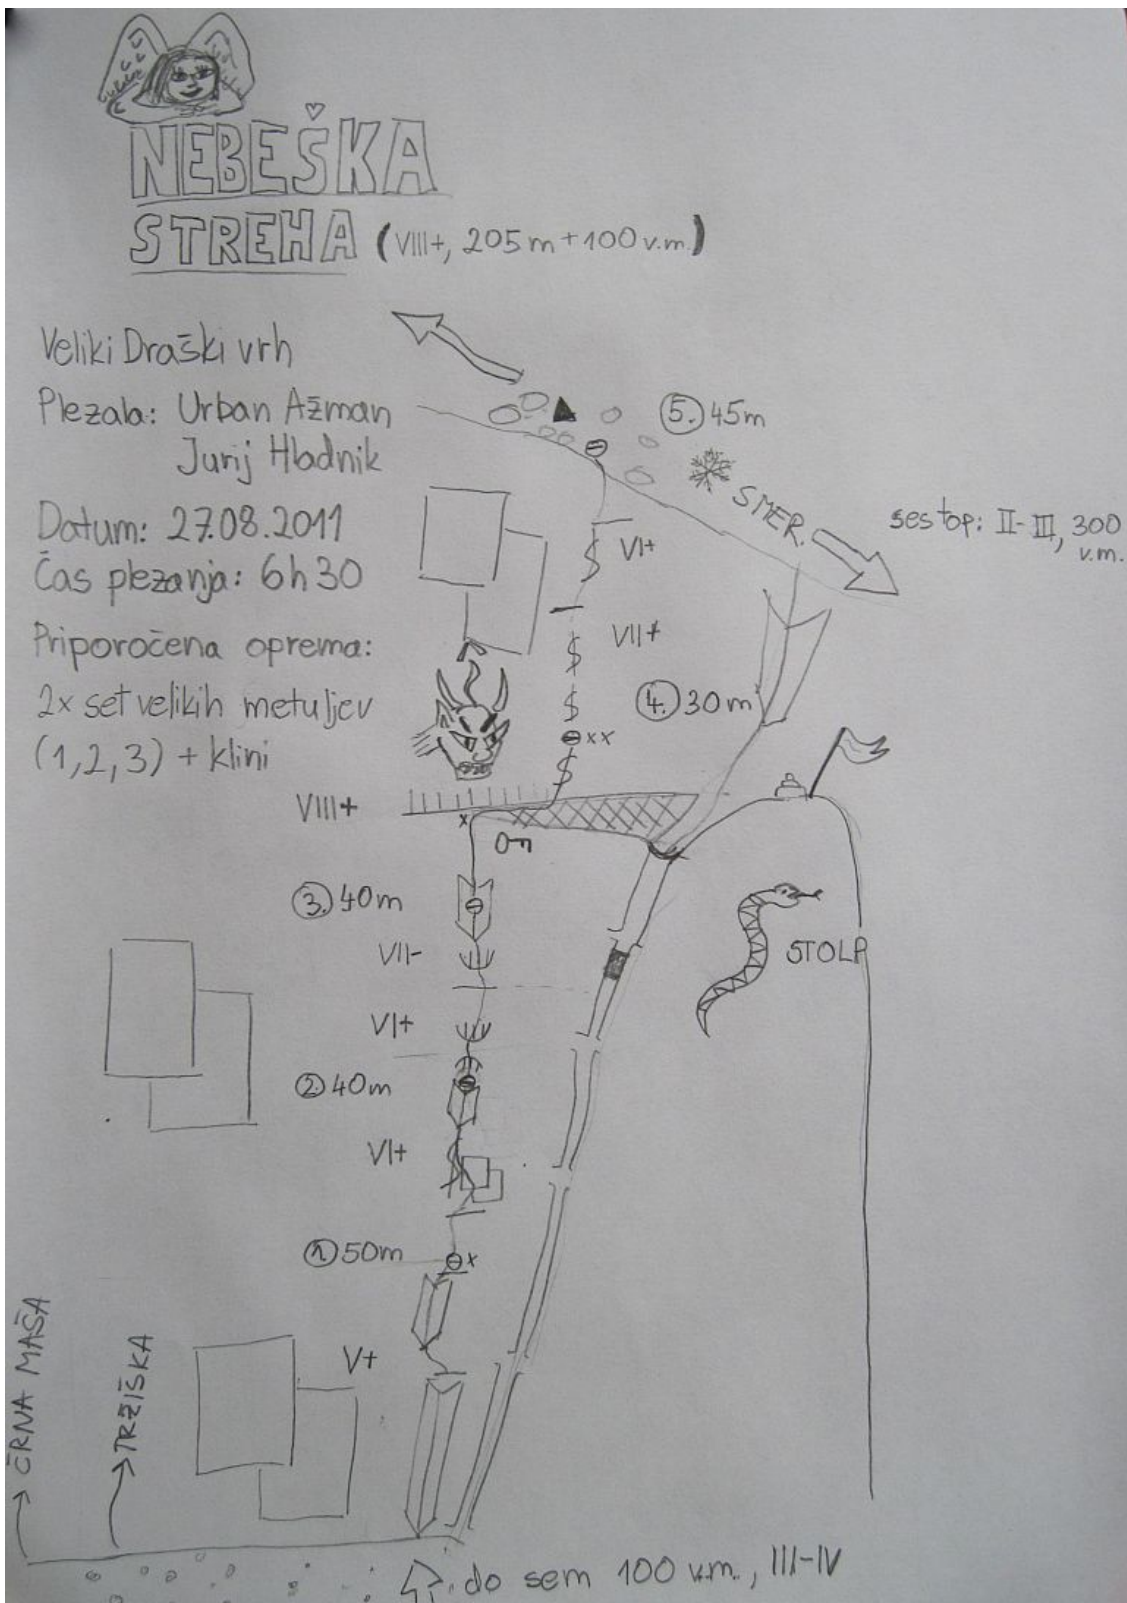 NEBEŠKA
STREHA (VIII+, 205m + 100 v.m.)
Veliki Draški vrh
Plezala: Urban Ažman
Jurij Hladnik
Datum: 27.08.2011
Čas plezanja: 6h30
Priporočena oprema:
2x set velikih metuljev
(1,2,3) + klini
5. 45m
SMER.
sestop: II-III, 300
v.m.
VI+
VII+
4. 30m
xx
VIII+
x
3. 40m
VII-
STOLP
VI+
2. 40m
VI+
1. 50m
x
V+
ČRNA MAŠA
TRŽIŠKA
do sem 100 v.m., III-IV